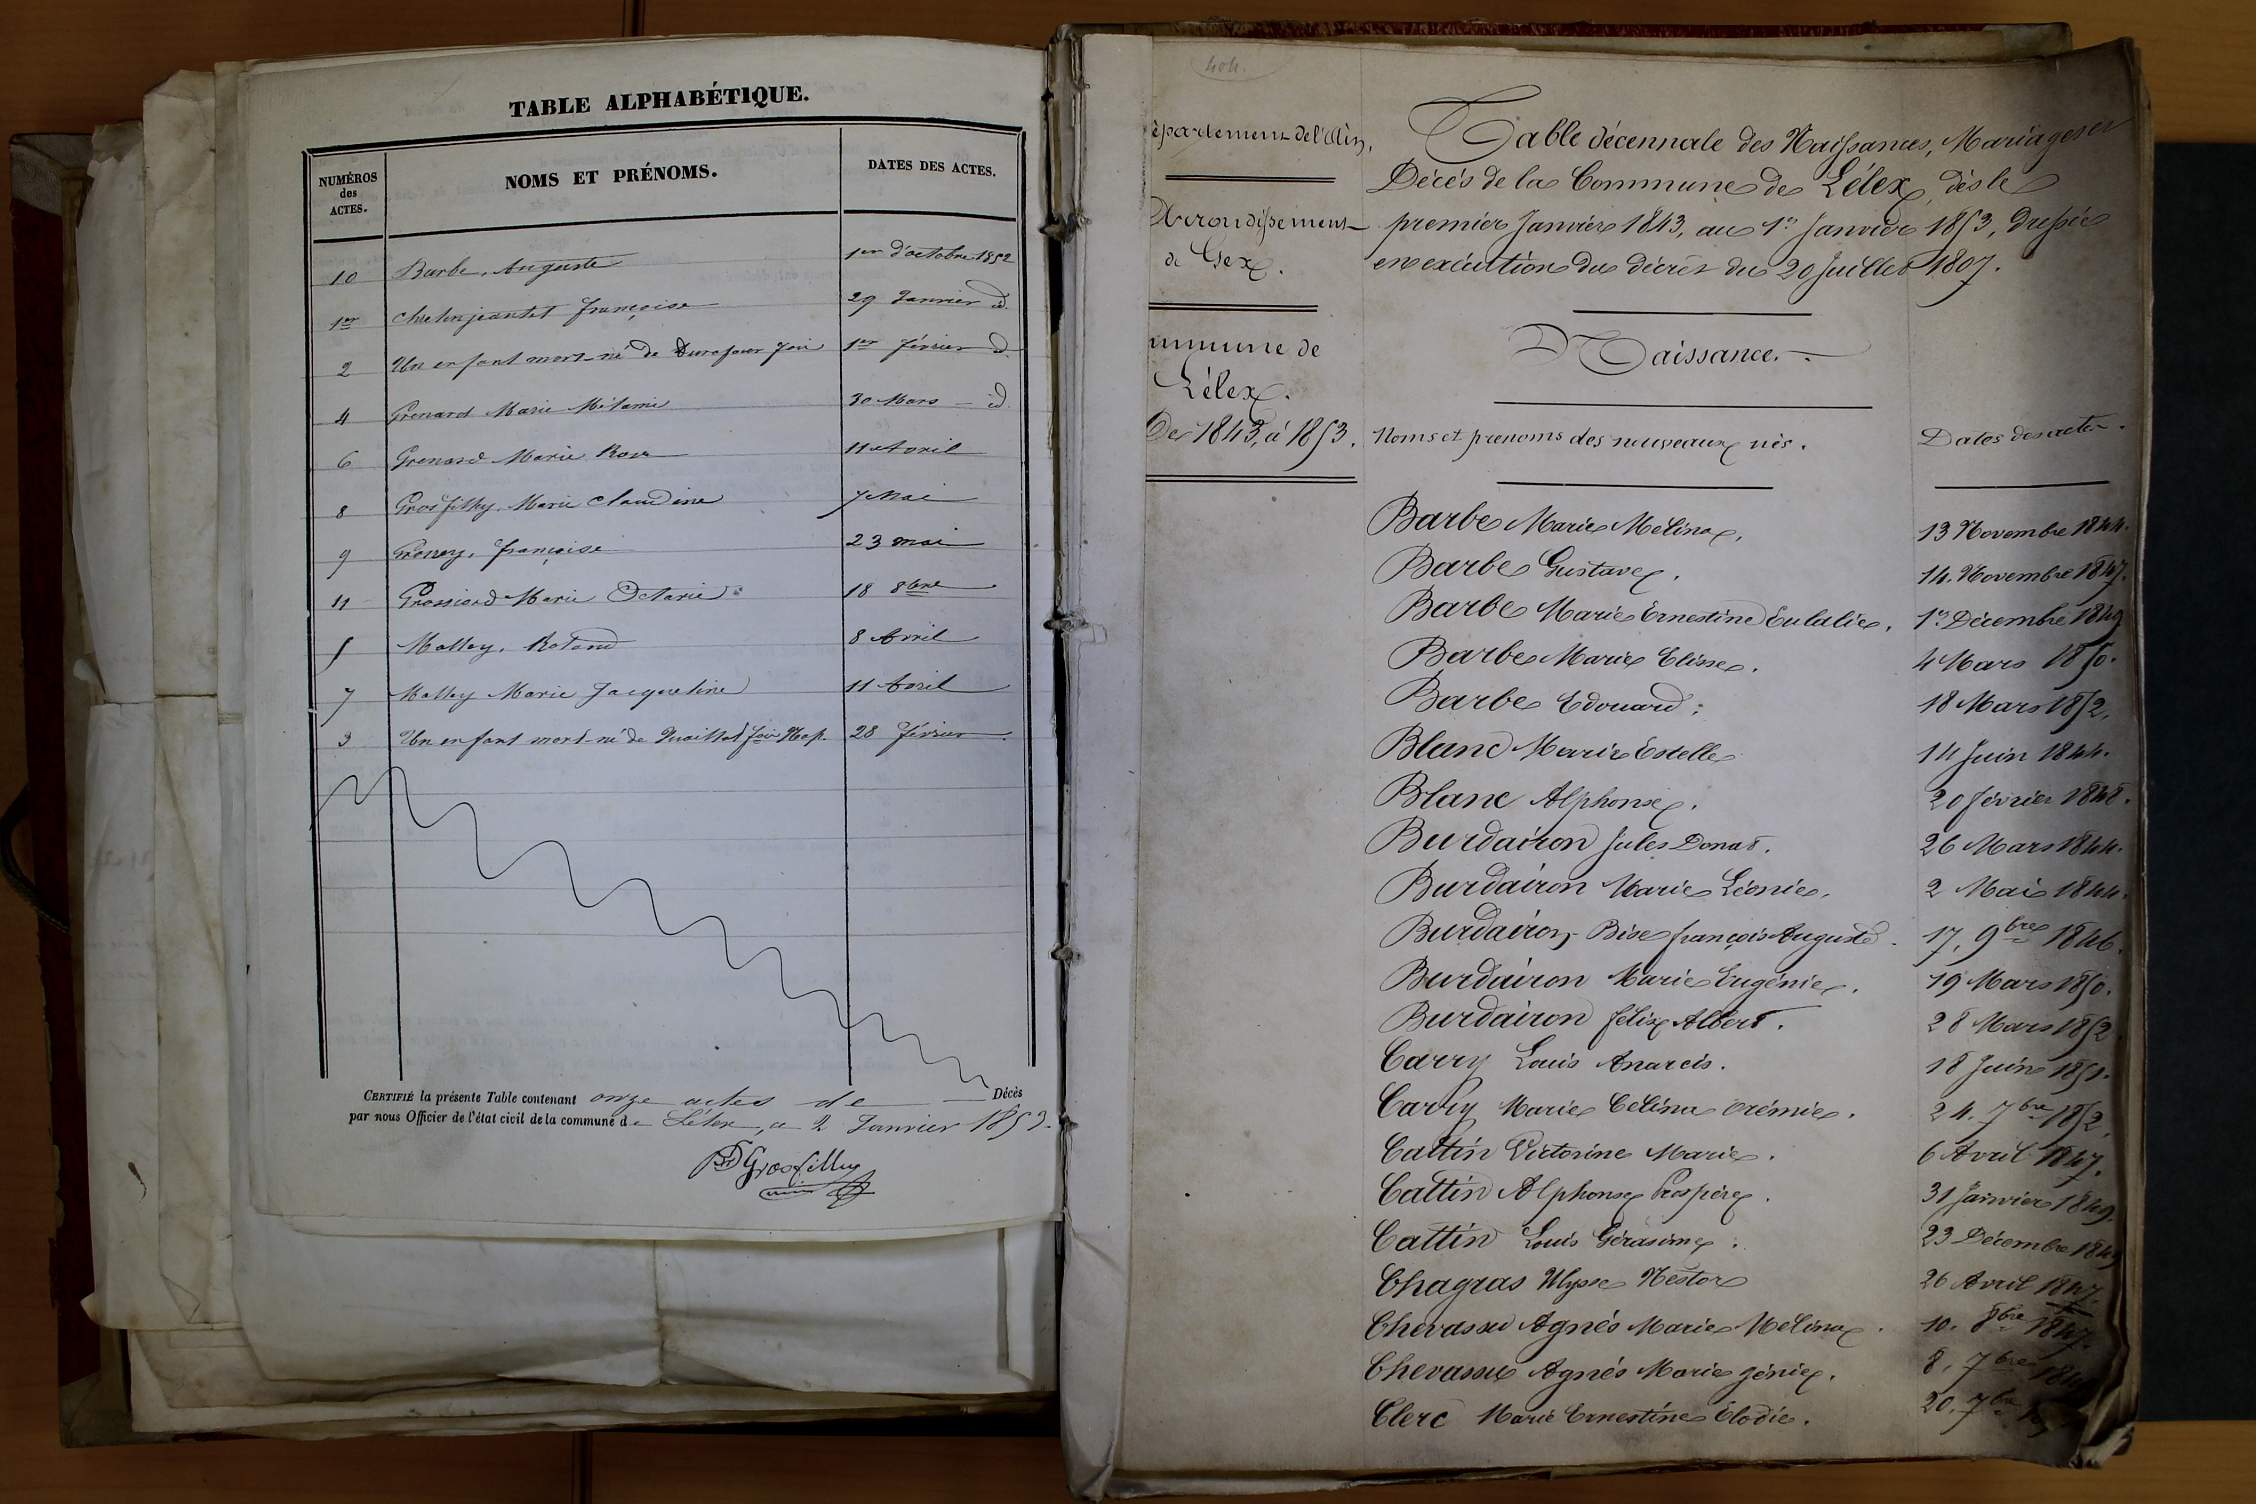 TABLE ALPHABÉTIQUE.
NUMÉROS des ACTES.
NOMS ET PRÉNOMS.
DATES DES ACTES.
10 Barbe, Auguste 1er d'octobre 1852
1er françoise 29 Janvier id.
2 Un enfant mort-né de Durafour 1er février id.
4 Grenard Marie Mélanie 30 Mars - id.
6 Grenard Marie Rose 11 Avril
8 Grosfilley Marie Claudine 7 Mai
9 françoise 23 mai
11 Grossiord Marie Octavie 18 8bre
5 Molley, Roland 8 Avril
7 Molley Marie Jacqueline 11 Avril
3 Un enfant mort-né de 28 février
CERTIFIÉ la présente Table contenant onze actes de Décès
par nous Officier de l'état civil de la commune de Lélex, ce 2 Janvier 1853.
Grosfilley
404.
épartement de l'Ain,
Arrondissement
de Gex.
mmune de
Lélex.
De 1843, à 1853.
Table décennale des Naissances, Mariages et
Décès de la Commune de Lélex, dès le
premier Janvier 1843, au 1er Janvier 1853, Dressée
en exécution du décret du 20 Juillet 1807.
Naissance.
Noms et prenoms des nouveaux nés.
Dates des actes.
Barbe Marie Mélina, 13 Novembre 1844.
Barbe Gustave. 14. Novembre 1847.
Barbe Marie Ernestine Eulalie, 1er Décembre 1849
Barbe Marie Elisse. 4 Mars 1850.
Barbe Edouard. 18 Mars 1852.
Blanc Marie Estelle 14 Juin 1844.
Blanc Alphonse. 20 février 1848.
Burdairon Jules Donat. 26 Mars 1844.
Burdairon Marie Léonie, 2 Mai 1844.
Burdairon-Bise françois Auguste. 17, 9bre 1846.
Burdairon Marie Eugénie. 19 Mars 1850.
Burdairon félix Albert. 28 Mars 1852
Carry Louis Anarcis. 18 Juin 1851.
Carry Marie Célina Orémie. 24. 7bre 1852.
Cattin Victorine Marie. 6 Avril 1847.
Cattin Alphonse Prospère. 31 Janvier 1849.
Cattin Louis Gérasime. 23 Décembre 1849
Chagras Ulysse Nestor 26 Avril 1847.
Chevassu Agnés Marie Mélina. 10. 8bre 1847.
Chevassu Agnés Marie génie. 8. 7bre
Clerc Marie Ernestine Élodie. 20. 7bre